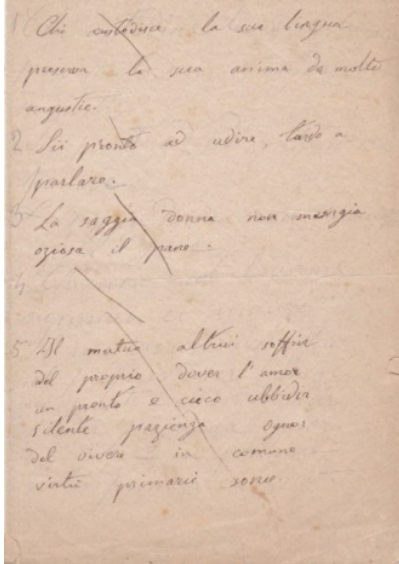 1 Chi custodisce la sua lingua
preserva la sua anima da molte
angustie.
2 Sii pronto ad udire, tardo a
parlare.
3 La saggia donna non mangia
oziosa il pane.
4
5 Il mutuo altrui soffrir
del proprio dover l'amor
un pronto e cieco ubbidir
silente pazienza ognor
del vivere in comune
virtù primarie sono.